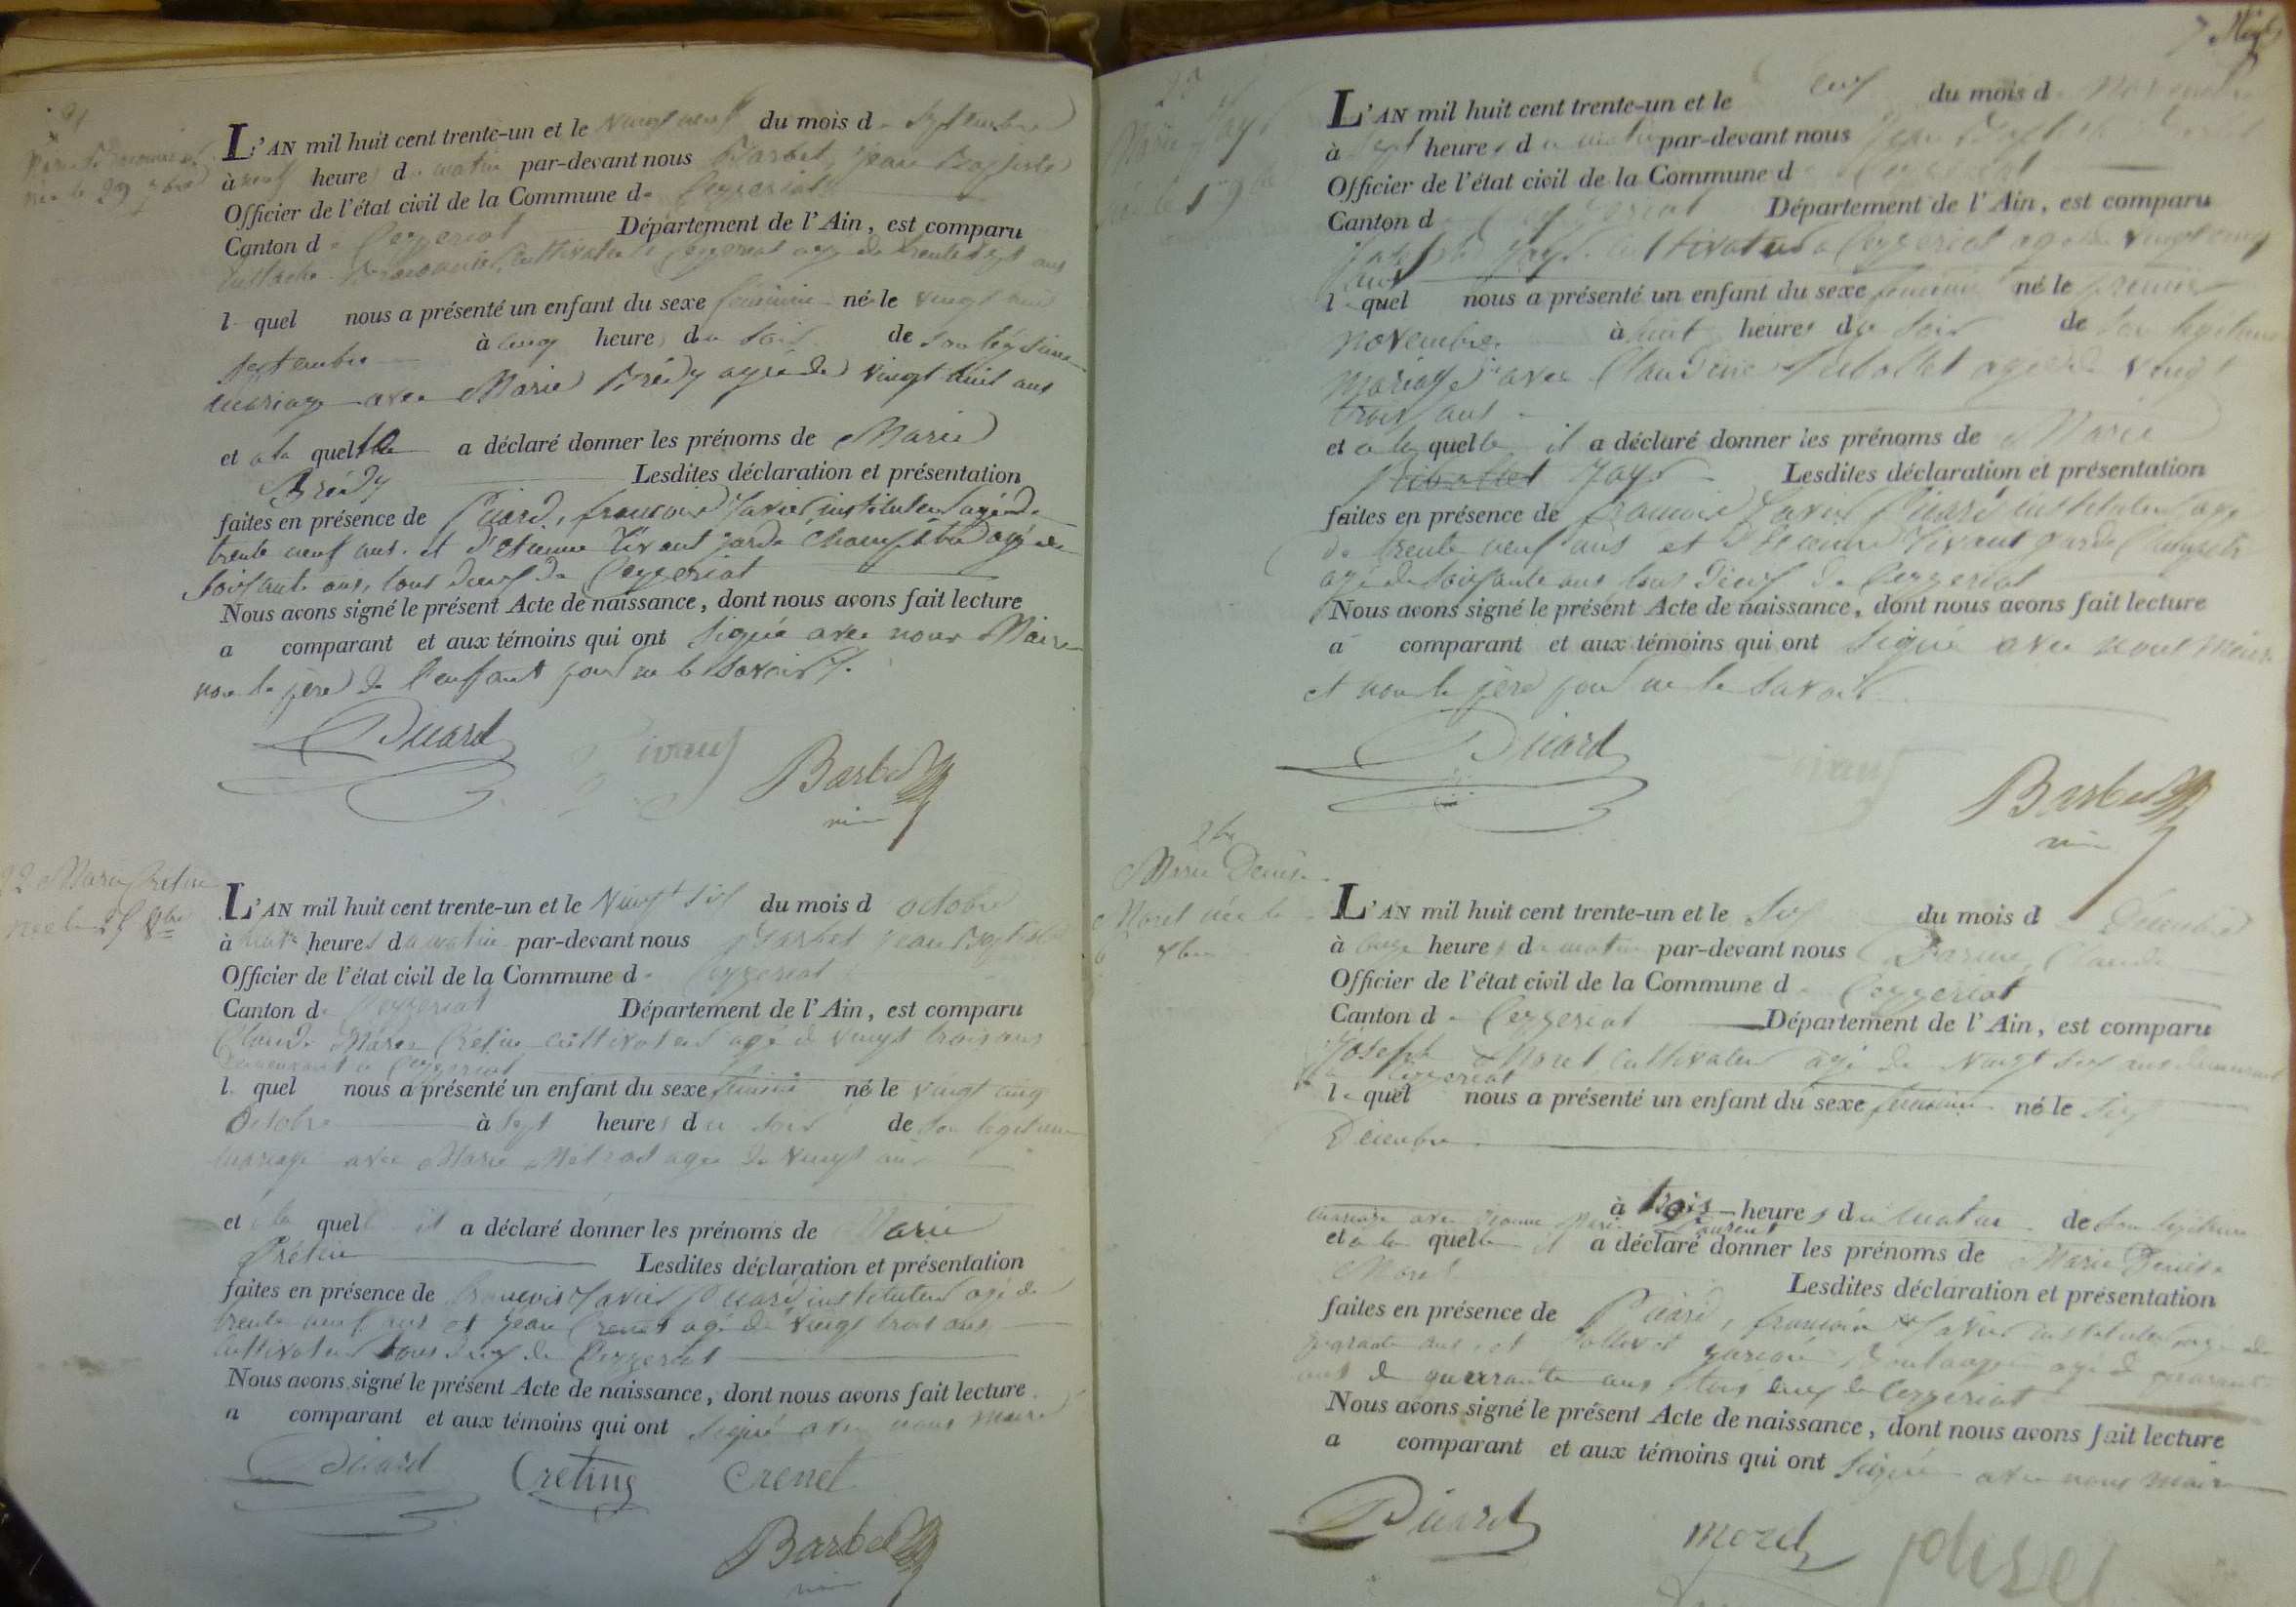 L'AN mil huit cent trente-un et le Vingt neuf du mois de Septembre
à neuf heures du matin par-devant nous Barbet, Jean Baptiste
Officier de l'état civil de la Commune de Ceyzeriat
Canton de Ceyzeriat Département de l'Ain, est comparu
Eustache cultivateur à Ceyzeriat agé de trente sept ans
lequel nous a présenté un enfant du sexe féminin née le vingt neuf
septembre à cinq heures du soir de son légitime
mariage avec Marie Brédy agée de vingt huit ans
et à la quelle a déclaré donner les prénoms de Marie
Brédy Lesdites déclaration et présentation
faites en présence de Picard, françois Xavier instituteur agé de
trente neuf ans. et d'Etienne Vivant garde champêtre agé de
soixante ans, tous deux de Ceyzeriat
Nous avons signé le présent Acte de naissance, dont nous avons fait lecture
a comparant et aux témoins qui ont signé avec nous Maire
non le père de l'enfant pour ne le savoir
Picard Vivant Barbet
22 Marie Cretin
née le 25 8bre
L'AN mil huit cent trente-un et le Vingt six du mois d octobre
à heures du matin par-devant nous Barbet Jean Baptiste
Officier de l'état civil de la Commune de Ceyzeriat
Canton de Ceyzeriat Département de l'Ain, est comparu
Claude Marie Crétin cultivateur agé de vingt trois ans
demeurant à Ceyzeriat
lequel nous a présenté un enfant du sexe féminin né le vingt cinq
Octobre à sept heures du soir de son légitime
mariage avec Marie Métrad agée de vingt ans
et à la quelle il a déclaré donner les prénoms de Marie
Crétin Lesdites déclaration et présentation
faites en présence de françois Xavier Picard instituteur agé de
trente neuf ans et Jean Crenet agé de vingt trois ans
cultivateur tous deux de Ceyzeriat
Nous avons signé le présent Acte de naissance, dont nous avons fait lecture
a comparant et aux témoins qui ont signé avec nous maire
Picard Cretin Crenet
Barbet
L'AN mil huit cent trente-un et le du mois de Novembre
à sept heures du matin par-devant nous Jean Bapt
Officier de l'état civil de la Commune d Ceyzeriat
Canton d Ceyzeriat Département de l'Ain, est comparu
Jayr cultivateur à Ceyzeriat agé de vingt cinq
ans
lequel nous a présenté un enfant du sexe féminin né le premier
novembre à huit heures du soir de son légitime
mariage avec Claudine agée de vingt
trois ans
et à la quelle il a déclaré donner les prénoms de Marie
Jayr Lesdites déclaration et présentation
faites en présence de françois Xavier Picard instituteur agé
de trente neuf ans et d'Etienne Vivant garde champêtre
agé de soixante ans tous deux de Ceyzeriat
Nous avons signé le présent Acte de naissance, dont nous avons fait lecture
a comparant et aux témoins qui ont signé avec nous maire
et non le père pour ne le savoir
Picard Vivant Barbet
Marie Denise
Morel née le
6 Xbre
L'AN mil huit cent trente-un et le Six du mois de Décembre
à onze heures du matin par-devant nous Claude
Officier de l'état civil de la Commune de Ceyzeriat
Canton de Ceyzeriat Département de l'Ain, est comparu
Joseph Morel cultivateur agé de vingt six ans demeurant
à Ceyzeriat
lequel nous a présenté un enfant du sexe féminin né le six
Décembre
à trois heures du matin de son légitime
mariage avec Jeanne Marie Laurent
et à la quelle il a déclaré donner les prénoms de Marie Denise
Morel Lesdites déclaration et présentation
faites en présence de Picard, françois Xavier instituteur agé de
quarante ans, et boulanger agé de quarante
ans de quarrante ans tous deux de Ceyzeriat
Nous avons signé le présent Acte de naissance, dont nous avons fait lecture
a comparant et aux témoins qui ont signé avec nous maire
Picard morel